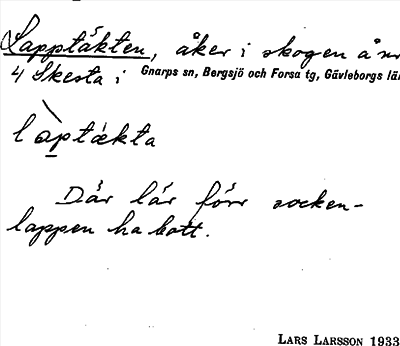 Lapptäkten, åker i skogen å nr
4 Skesta i Gnarps sn, Bergsjö och Forsa tg, Gävleborgs län
làptäkta
Där lär förr socken-
lappen ha bott.
LARS LARSSON 1933